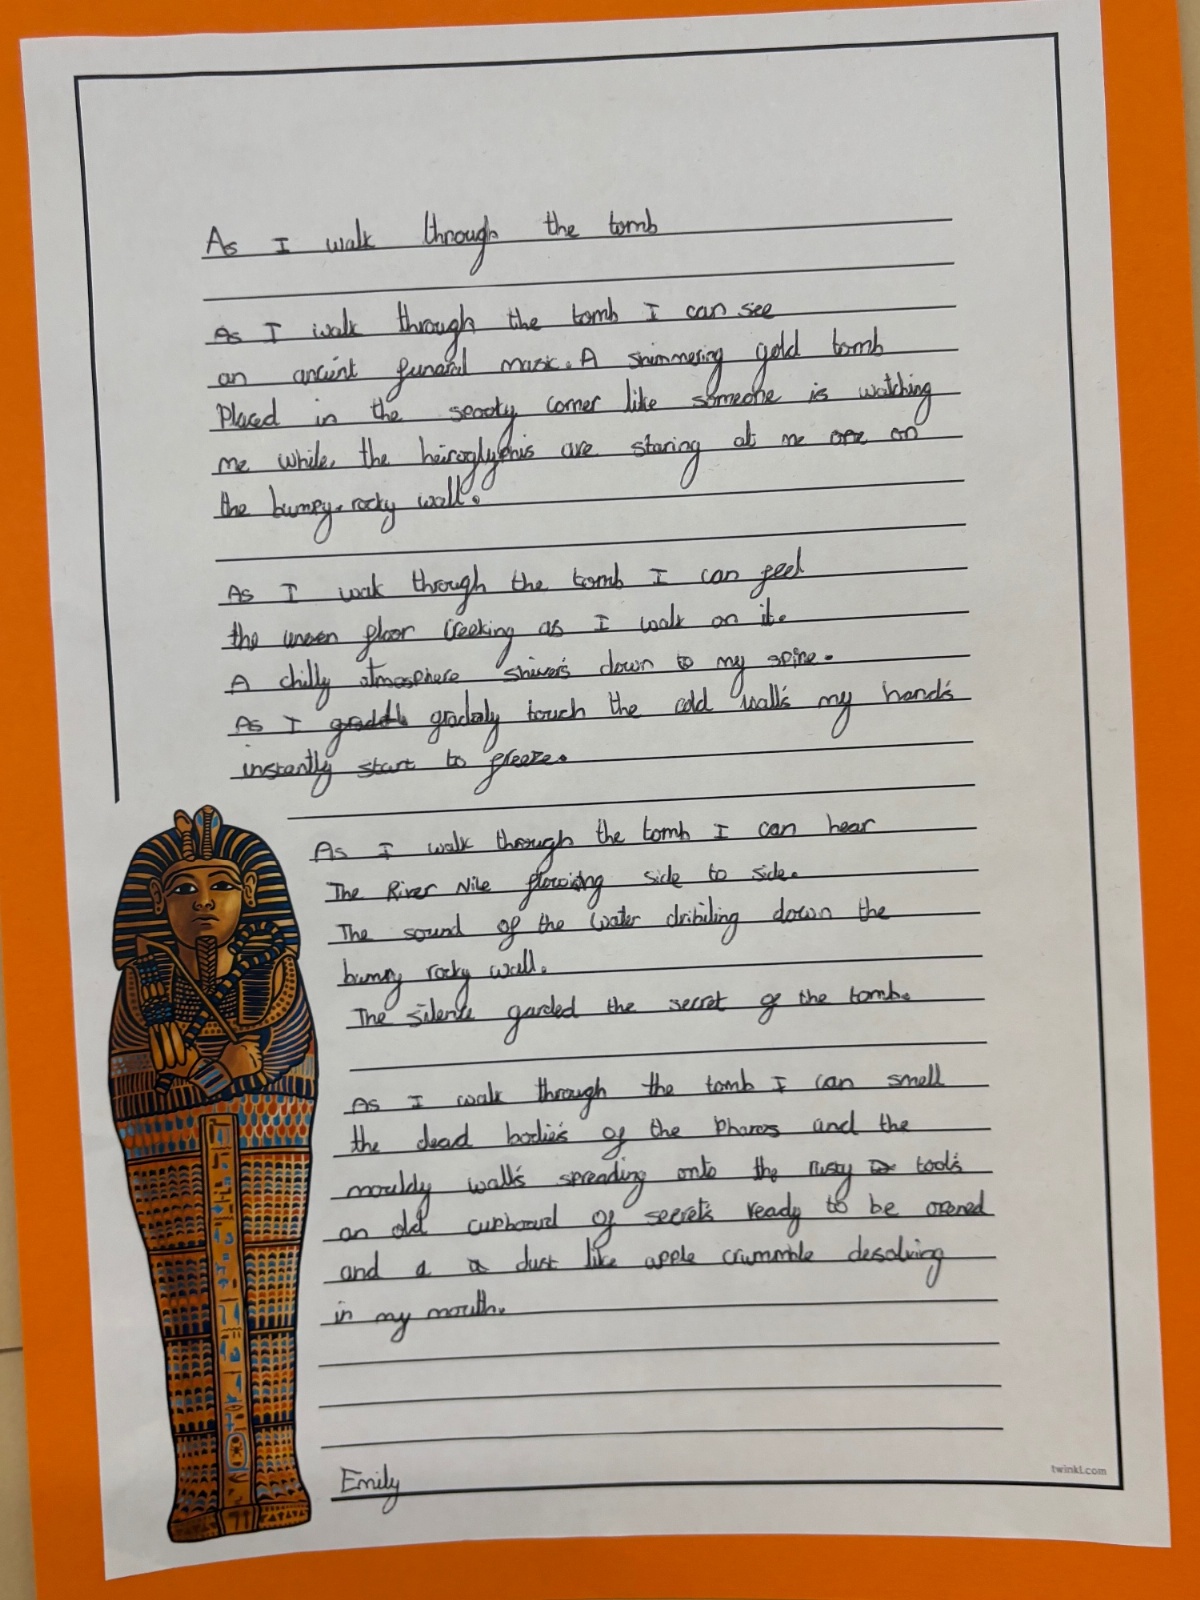 As I walk through the tomb
As I walk through the tomb I can see
an ancient funeral mask. A shimmering gold tomb
Placed in the spooty corner like someone is watching
me while, the heiroglyphis are staring at me on
the bumpy, rocky wall.
As I walk through the tomb I can feel
the uneven floor Creeking as I walk on it.
A chilly atmosphere shivers down to my spine.
As I gradaly touch the cold walls my hands
instantly start to freeze.
As I walk through the tomb I can hear
The River Nile flowing side to side.
The sound of the water dribiling down the
bumpy rocky wall.
The silence garded the secret of the tomb.
As I walk through the tomb I can smell
the dead bodies of the Pharos and the
mouldy walls spreading onto the rusty tools
an old cupboard of secrets ready to be opened
and a dust like apple crummble desolving
in my mouth.
Emily
twinkl.com